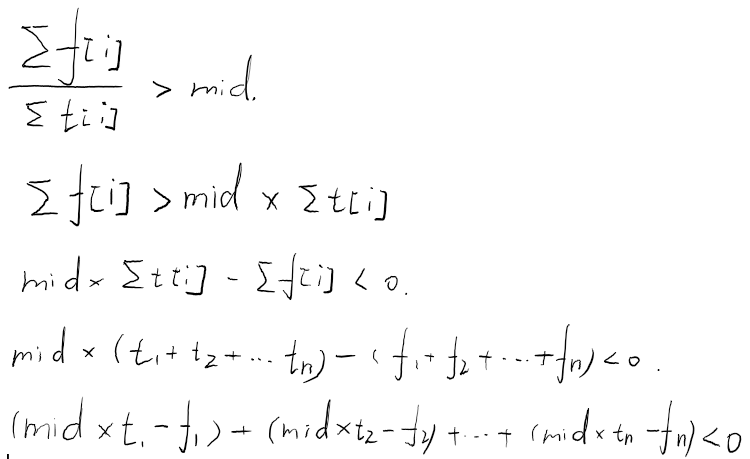 Σf[i]
Σt[i] > mid.
Σf[i] > mid × Σt[i]
mid × Σt[i] - Σf[i] < 0.
mid × (t1 + t2 + ... tn) - (f1 + f2 + ... + fn) < 0.
(mid × t1 - f1) + (mid × t2 - f2) + ... + (mid × tn - fn) < 0